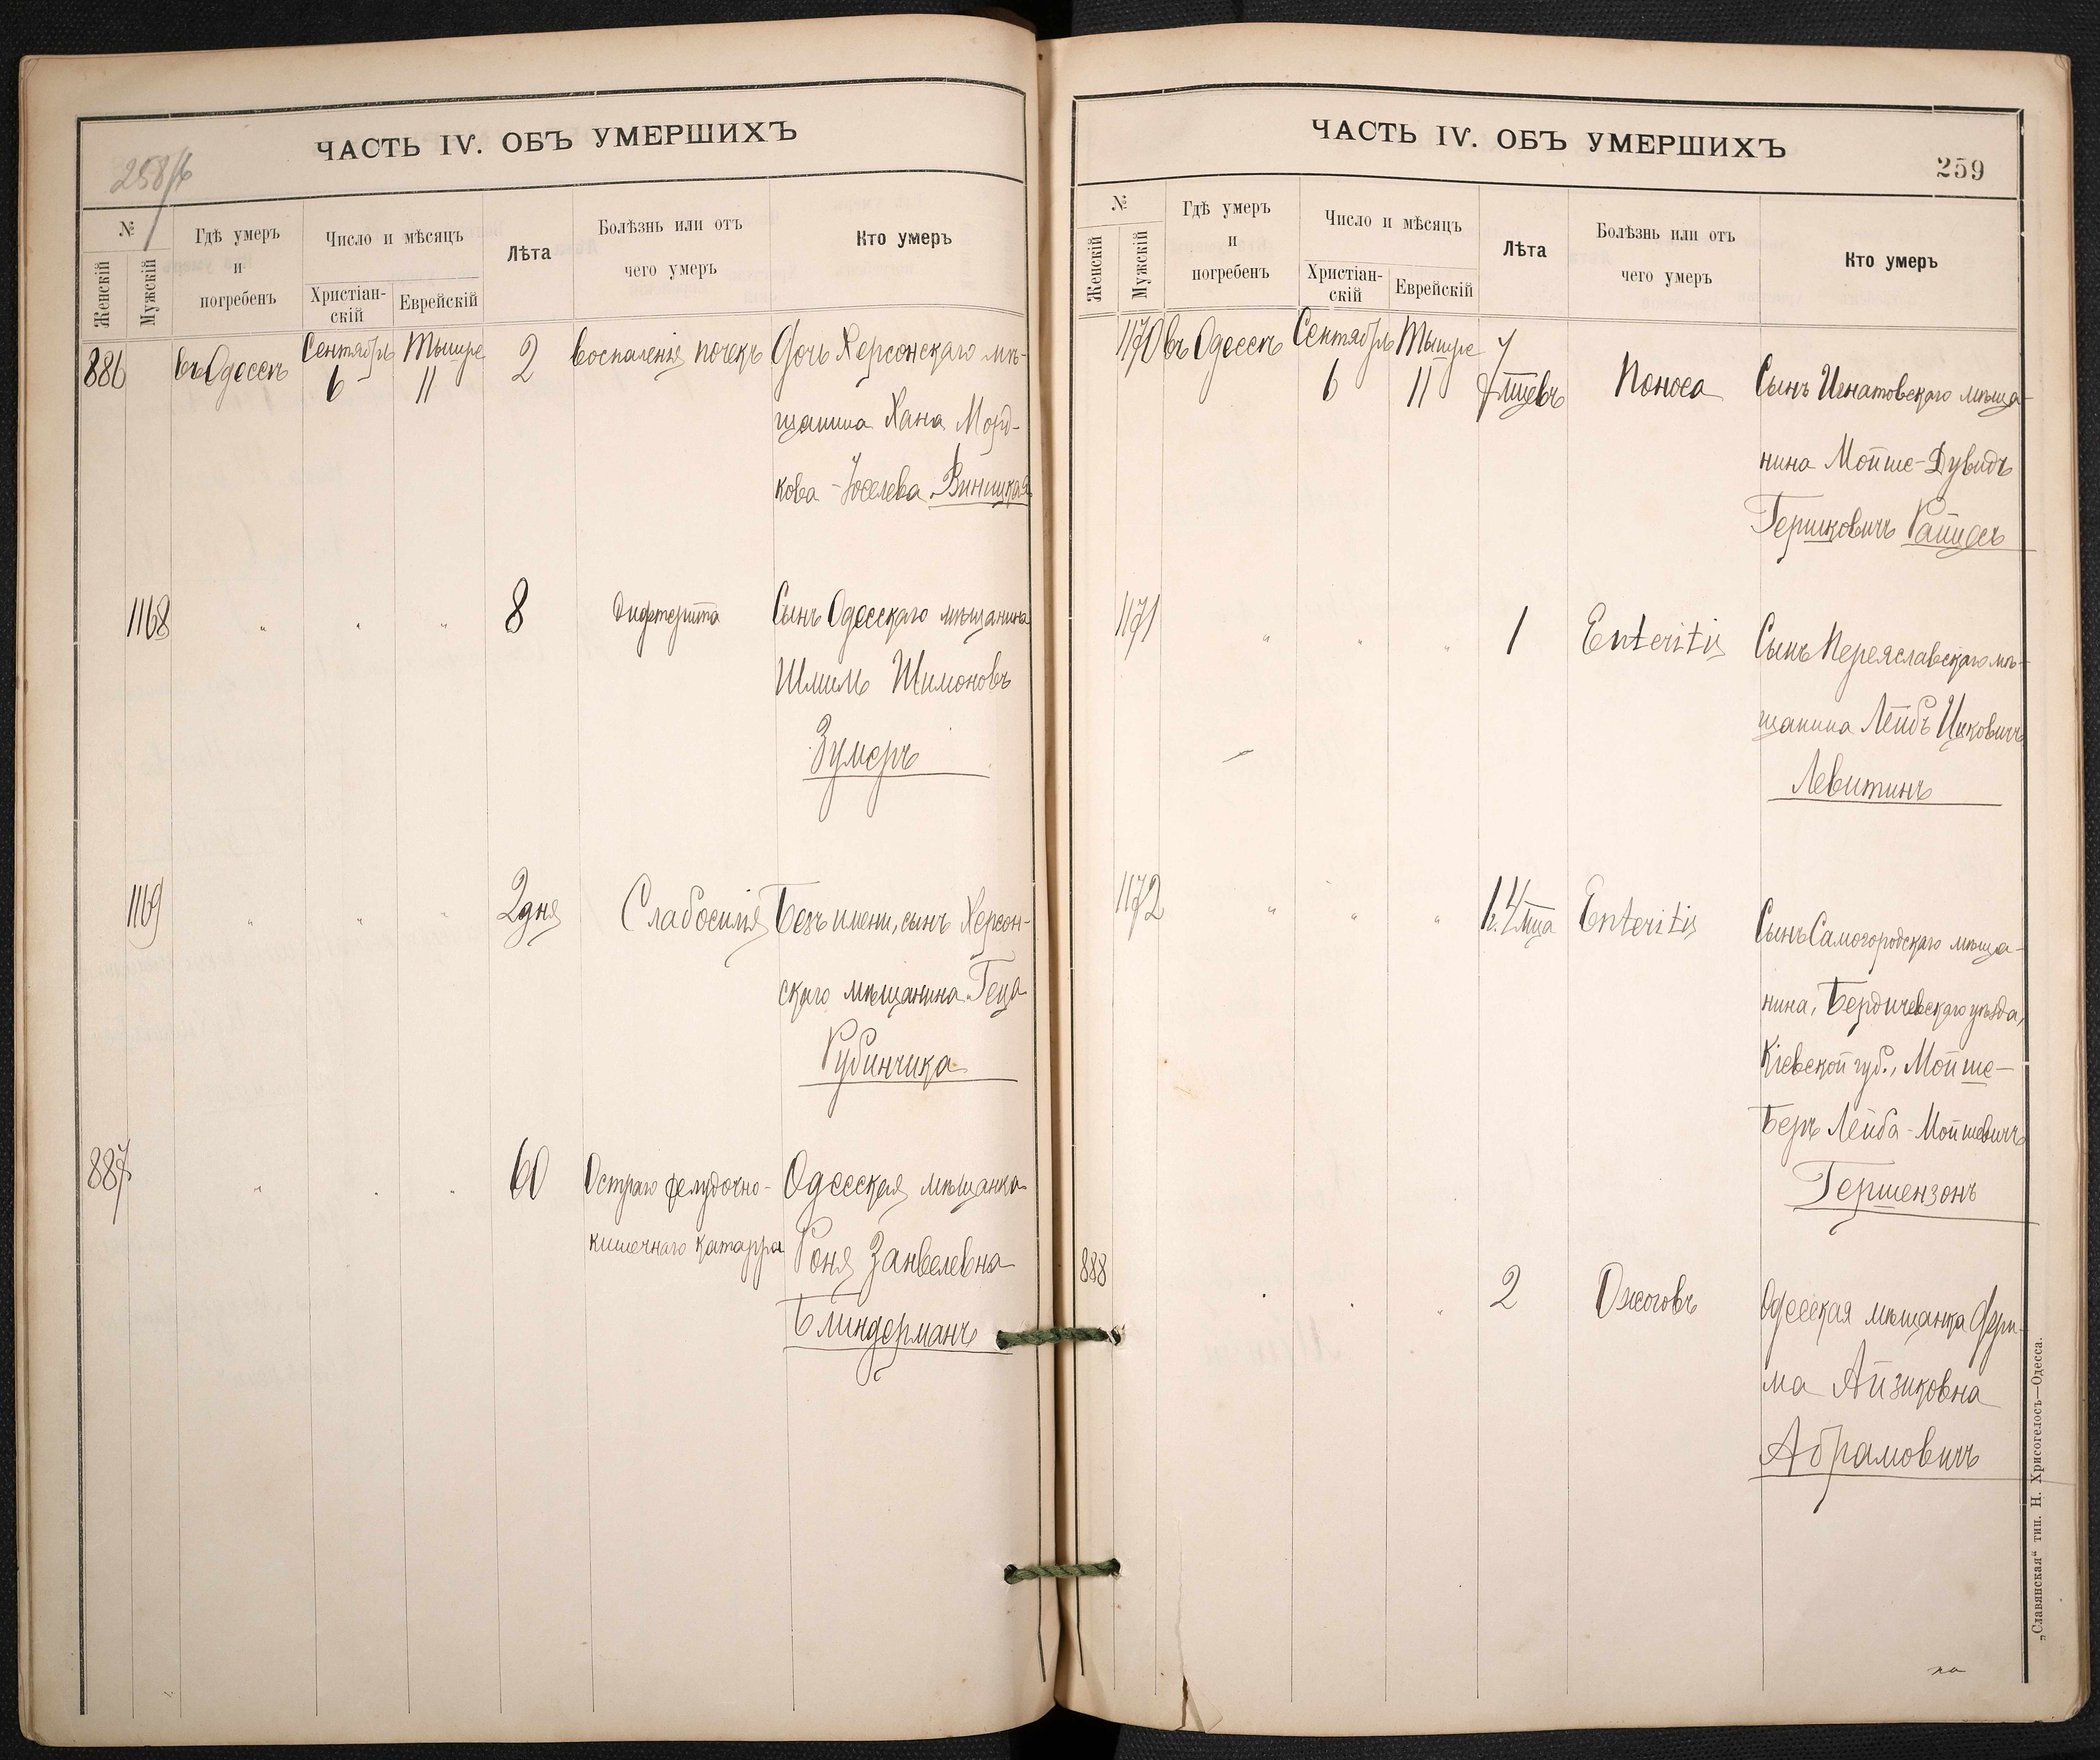 ЧАСТЬ IV. ОБЪ УМЕРШИХЪ
№
Женскій
Мужскій
Гдѣ умеръ
и
погребенъ
Число и мѣсяцъ
Христіан-
скій
Еврейскій
Лѣта
Болѣзнь или отъ
чего умеръ
Кто умеръ
886 въ Одессѣ Сентябрь 6 Тышре 11 2 воспаленія почекъ Дочь Херсонскаго мѣ-
щанина Хана Морд-
кова-Іоселева Виницкая
1168 " " " 8 Дифтерита Сынъ Одесскаго мѣщанина
Шмиль Шимоновъ
Зумеръ
1169 " " " 2 дня Слабосилія Безъ имени, сынъ Херсон-
скаго мѣщанина Геца
Рубинчика
887 " " " 60 Остраго желудочно- Одесская мѣщанка
кишечнаго катарра Роня Занвелевна
Блиндерманъ
ЧАСТЬ IV. ОБЪ УМЕРШИХЪ
259
№
Женскій
Мужскій
Гдѣ умеръ
и
погребенъ
Число и мѣсяцъ
Христіан-
скій
Еврейскій
Лѣта
Болѣзнь или отъ
чего умеръ
Кто умеръ
1170 въ Одессѣ Сентябрь 6 Тышре 11 7 мцевъ Поноса Сынъ Игнатовскаго мѣща-
нина Мойше-Дувидъ
Гершковичъ Райдеръ
1171 " " " 1 Enteritis Сынъ Переяславскаго мѣ-
щанина Лейбъ Ицковичъ
Левитинъ
1172 " " " 1 г. 4 мца Enteritis Сынъ Самогородскаго мѣща-
нина, Бердичевскаго уѣзда,
Кіевской губ., Мойше-
Беръ Лейба-Мойшевичъ
Гершензонъ
888 " " " 2 Ожоговъ Одесская мѣщанка
Айзиковна
Абрамовичъ
„Славянская“ тип. Н. Хрисогелосъ—Одесса.